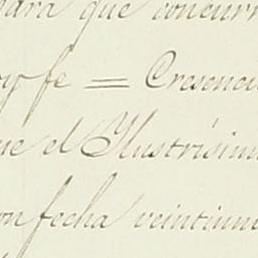 para que concurr
oy fe = Cresenci
ue el Ylustrísim
on fecha veintiun